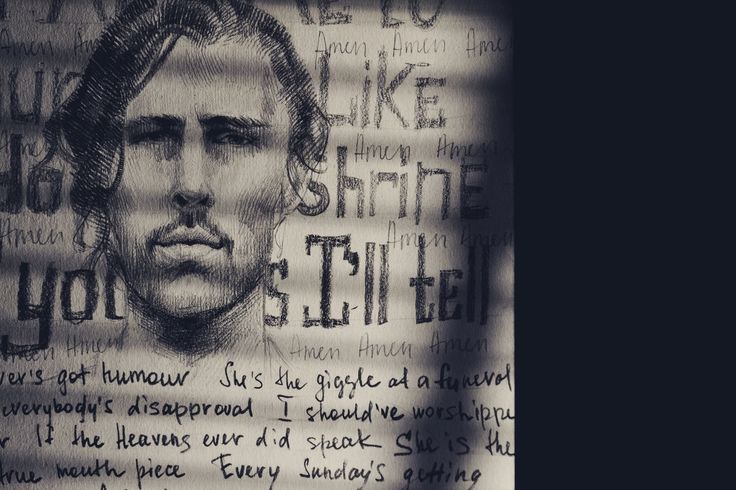 Amen Amen Amen
Like
Amen Amen
shrine
Amen Amen Amen
you s I'll tell
Amen Amen Amen Amen Amen
ver's got humour She's the giggle at a funeral
everybody's disapproval I should've worshippe
r If the Heavens ever did speak She is the
true mouth piece Every Sunday's getting